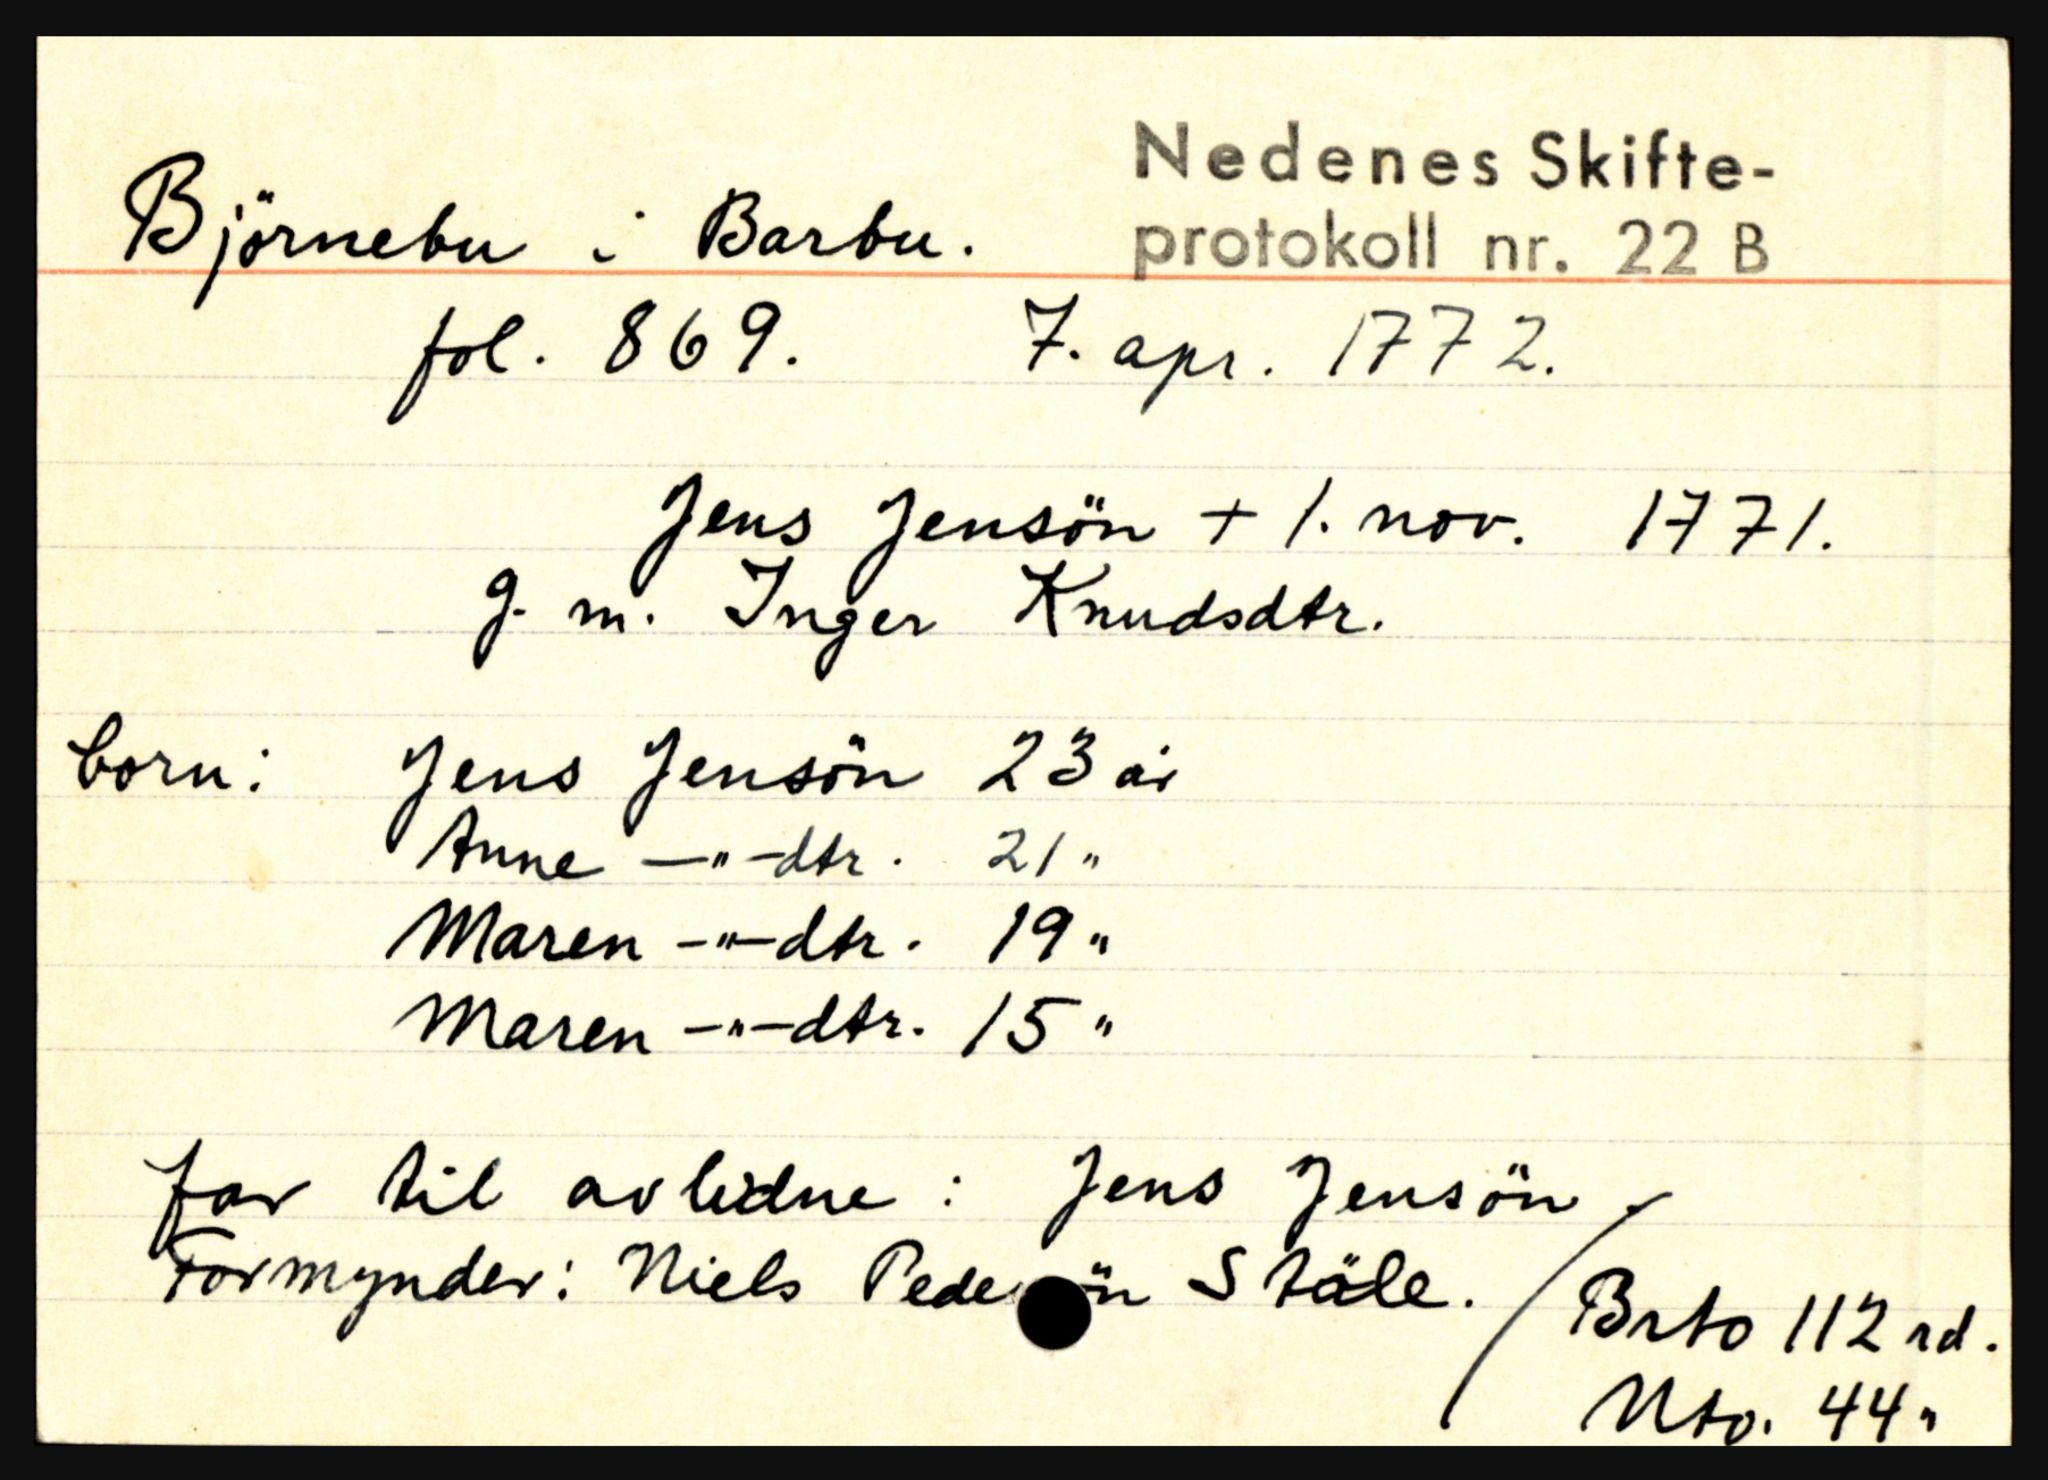 Nedenes Skifte-
Björnebu i Barbu. protokoll nr. 22 B
fol. 869. 7. apr. 1772.
Jens Jensön + 1. nov. 1771.
g. m. Inger Knudsdtr.
born: Jens Jensön 23 år
Anne —"—dtr. 21 "
Maren —"—dtr. 19 "
Maren —"—dtr. 15 "
far til avlidne : Jens Jensön
Formynder: Niels Stäle.
Brto 112 rd.
Nto. 44 "